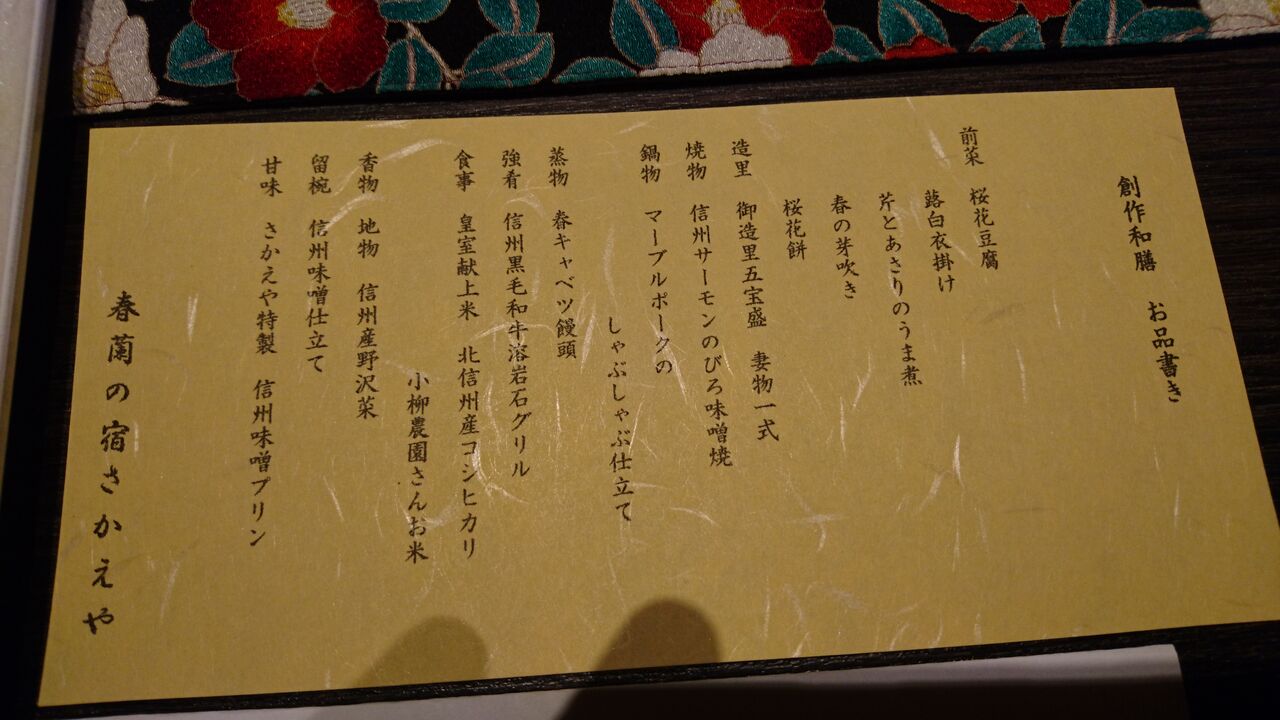 創作和膳 お品書き
前菜 桜花豆腐
蕗白衣掛け
芹とあさりのうま煮
春の芽吹き
桜花餅
造里 御造里五宝盛 妻物一式
焼物 信州サーモンのびろ味噌焼
鍋物 マーブルポークの
しゃぶしゃぶ仕立て
蒸物 春キャベツ饅頭
強肴 信州黒毛和牛溶岩石グリル
食事 皇室献上米 北信州産コシヒカリ
小柳農園さんお米
香物 地物 信州産野沢菜
留椀 信州味噌仕立て
甘味 さかえや特製 信州味噌プリン
春蘭の宿さかえや